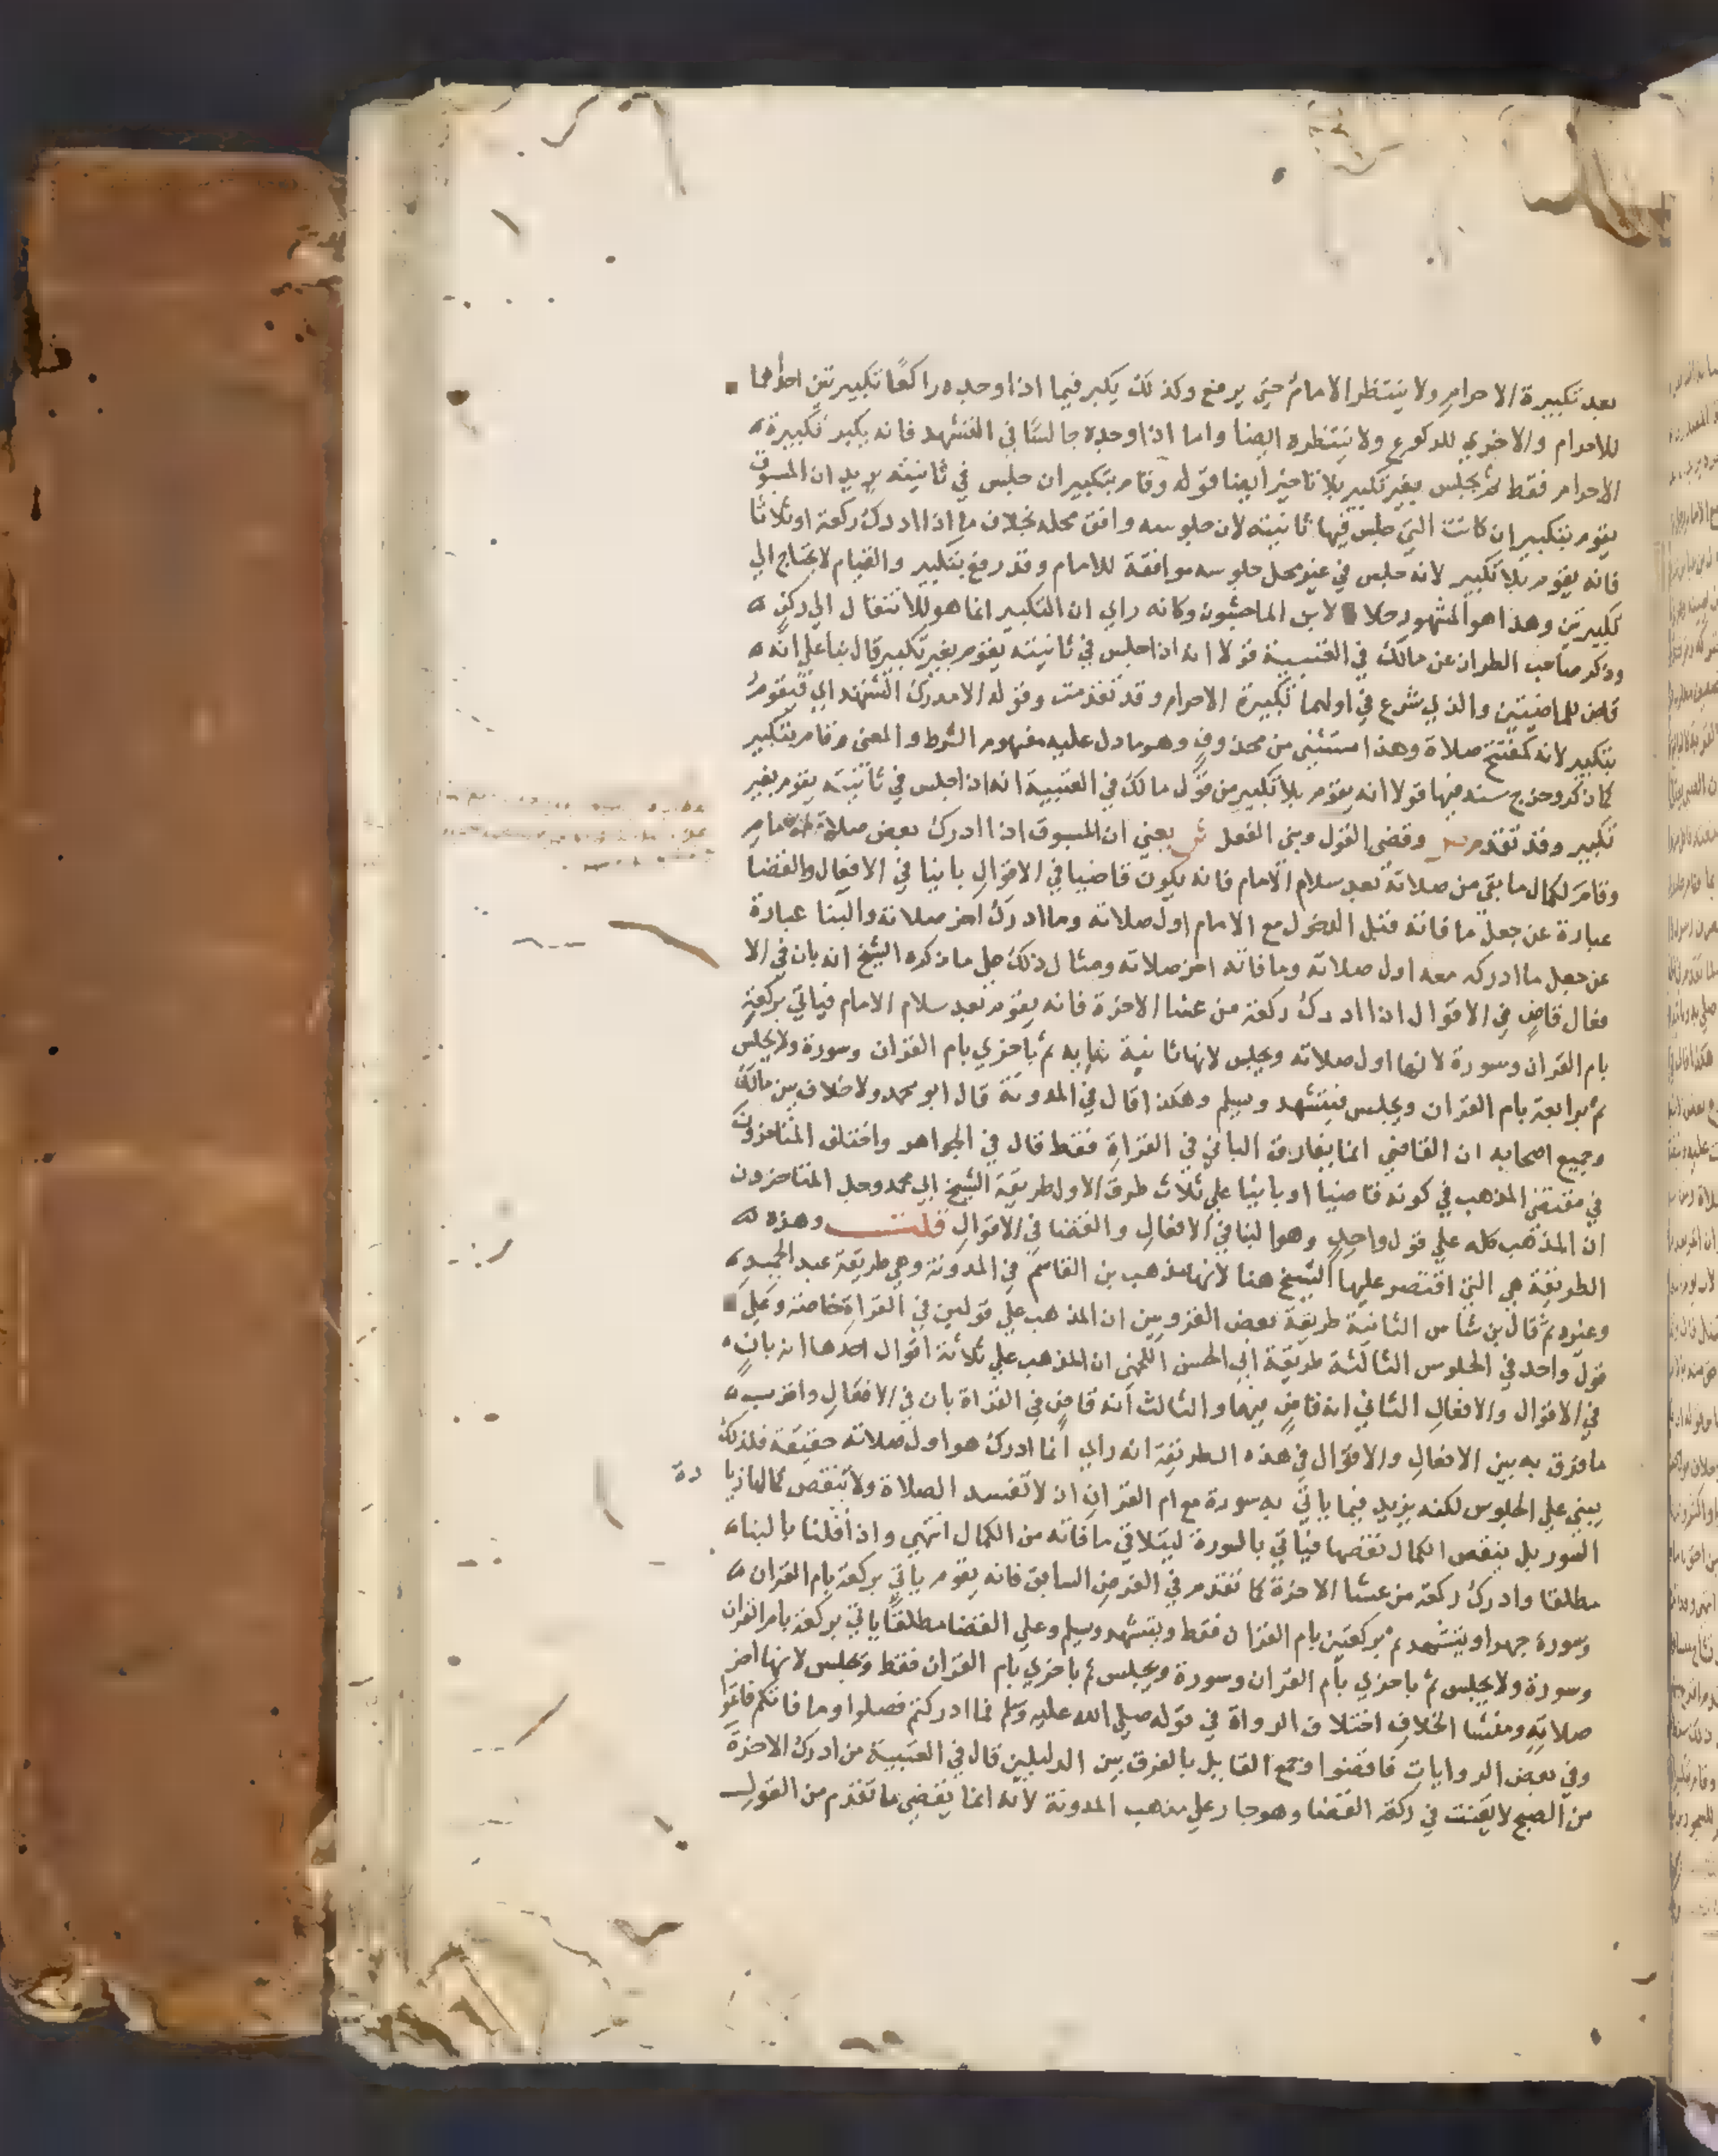 بعد تكبيرة الاحرام ولا ينتظر الامام حتى يرفع وكذلك يكبر فيما اذا وجده راكعًا تكبيرتين احداهما
للاحرام والاخري للركوع ولا ينتظره ايضا واما اذا وجده جالسًا في التشهد فانه يكبر تكبيرة
الاحرام فقط ثم يجلس بغير تكبير بلا تاخير ايضا قوله وقام بتكبير ان جلس في ثانيته يريد ان المسبوق
يقوم بتكبير ان كانت التي جلس فيها ثانيته لان جلوسه وافق محله بخلاف ما اذا ادرك ركعة او ثلاثا
فانه يقوم بلا تكبير لانه جلس في غير محل جلوسه موافقة للامام وقد رفع بتكبير والقيام لا يحتاج الي
تكبيرتين وهذا هو المشهور خلا لابن الماجشون وكانه راي ان التكبير انما هو للانتقال الي ركن
وذكر صاحب الطراز عن مالك في العتبية قولا انه اذا جلس في ثانيته يقوم بغير تكبير قال بنا علي انه
قاض للماضيتين والذي شرع في اولهما تكبيرة الاحرام وقد تقدمت وقوله الا مدرك التشهد اي فيقوم
بتكبير لانه كمفتتح صلاة وهذا مستثنى من محذوف وهو ما دل عليه مفهوم الشرط والمعنى وقام بتكبير
كما ذكر وخرج سند فيها قولا انه يقوم بلا تكبير من قول مالك في العتبية انه اذا جلس في ثانيته يقوم بغير
تكبير وقد تقدم ص وقضى القول وبنى الفعل ش يعني ان المسبوق اذا ادرك بعض صلاة الامام
وقام لكمال ما بقي من صلاته بعد سلام الامام فانه يكون قاضيا في الاقوال بانيا في الافعال والقضا
عبارة عن جعل ما فاته قبل الدخول مع الامام اول صلاته وما ادرك اخر صلاته والبنا عبارة
عن جعل ما ادركه معه اول صلاته وما فاته اخر صلاته ومثال ذلك حل ما ذكره الشيخ انه بان في الا
فعال قاض في الاقوال اذا ادرك ركعة من عشا الاخرة فانه يقوم بعد سلام الامام فياتي بركعة
بام القران وسورة لانها اول صلاته ويجلس لانها ثانية بنايه ثم باخري بام القران وسورة ولا يجلس
ثم برابعة بام القران ويجلس فيتشهد ويسلم وهكذا قال في المدونة قال ابو محمد ولا خلاف بين مالك
وجميع اصحابه ان القاضي انما يفارق الباني في القراة فقط قال في الجواهر واختلف المتاخرون
في مقتضى المذهب في كونه قاضيا او بانيا علي ثلاث طرق الاول طريقة الشيخ ابي محمد وجل المتاخرون
ان المذهب كله علي قول واحد وهو البنا في الافعال والقضا في الاقوال قلت وهذه
الطريقة هي التي اقتصر عليها الشيخ هنا لانها مذهب بن القاسم في المدونة وهي طريقة عبد الحميد
وغيره ثم قال بن شاس الثانية طريقة بعض القرويين ان المذهب علي قولين في القراة خاصة وعلي
قول واحد في الجلوس الثالثة طريقة ابي الحسن اللخمي ان المذهب علي ثلاثة اقوال احدها انه بان
في الاقوال والافعال الثاني انه قاض فيهما والثالث انه قاض في القراة بان في الافعال واقرب
ما فرق به بين الافعال والاقوال في هذه الطريقة انه راي انما ادرك هو اول صلاته حقيقة فلذلك
يبني علي الجلوس لكنه يزيد فيما ياتي به سورة مع ام القران اذ لا تفسد الصلاة ولا تنقص كمالها زيا دة
السور بل ينقص الكمال نقصها فياتي بالسورة ليتلافي ما فاته من الكمال انتهي واذا قلنا بالبنا
مطلقا وادرك ركعة من عشا الاخرة كما تقدم في الفرض السابق فانه يقوم ياتي بركعة بام القران
وسورة جهرا ويتشهد ثم بركعتين بام القران فقط ويتشهد ويسلم وعلي القضا مطلقا ياتي بركعة بام القران
وسورة ولا يجلس ثم باخري بام القران وسورة ويجلس ثم باخري بام القران فقط ويجلس لانها اخر
صلاته ومنشا الخلاف اختلاف الرواة في قوله صلي الله عليه وسلم فما ادركتم فصلوا وما فاتكم فاتموا
وفي بعض الروايات فاقضوا فجمع القايل بالفرق بين الدليلين قال في العتبية من ادرك الاخرة
من الصبح لا يقنت في ركعة القضا وهو جار علي مذهب المدونة لانه انما يقضي ما تقدم من القول